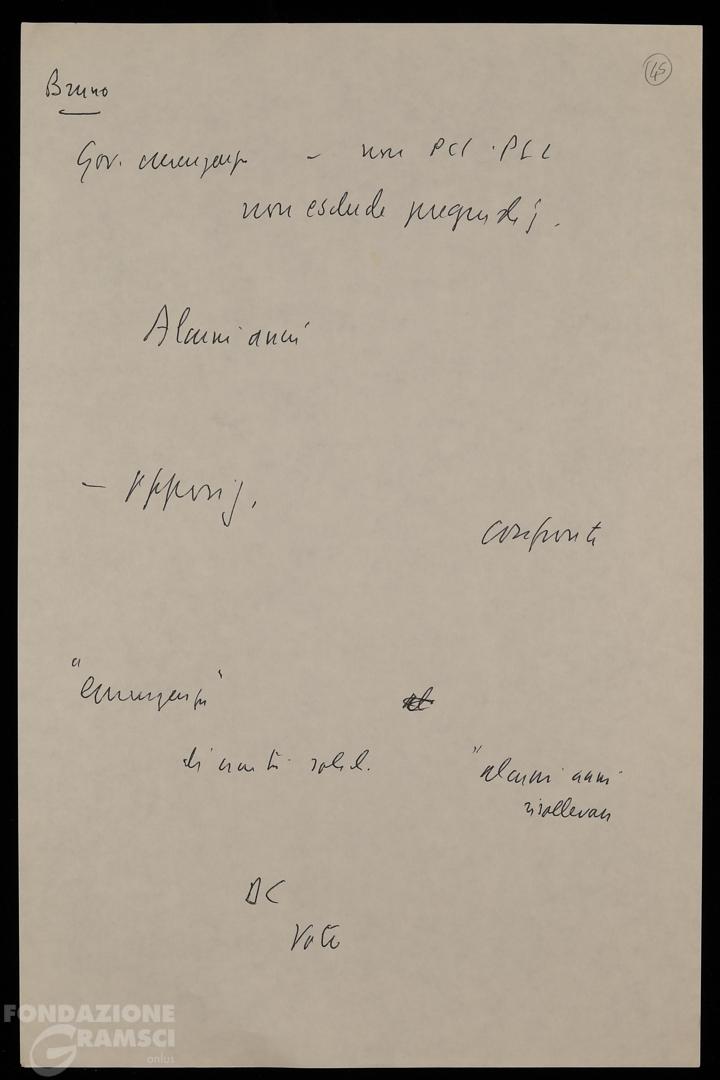 45
Bruno
Gov. emergenza - non PCI. PLI
non esclude pregiudiz.
Alcuni anni
- Opposiz.
confronti
"emergenza"
di unità solid.
"alcuni anni
risollevar
DC
Voto
FONDAZIONE
GRAMSCI
onlus